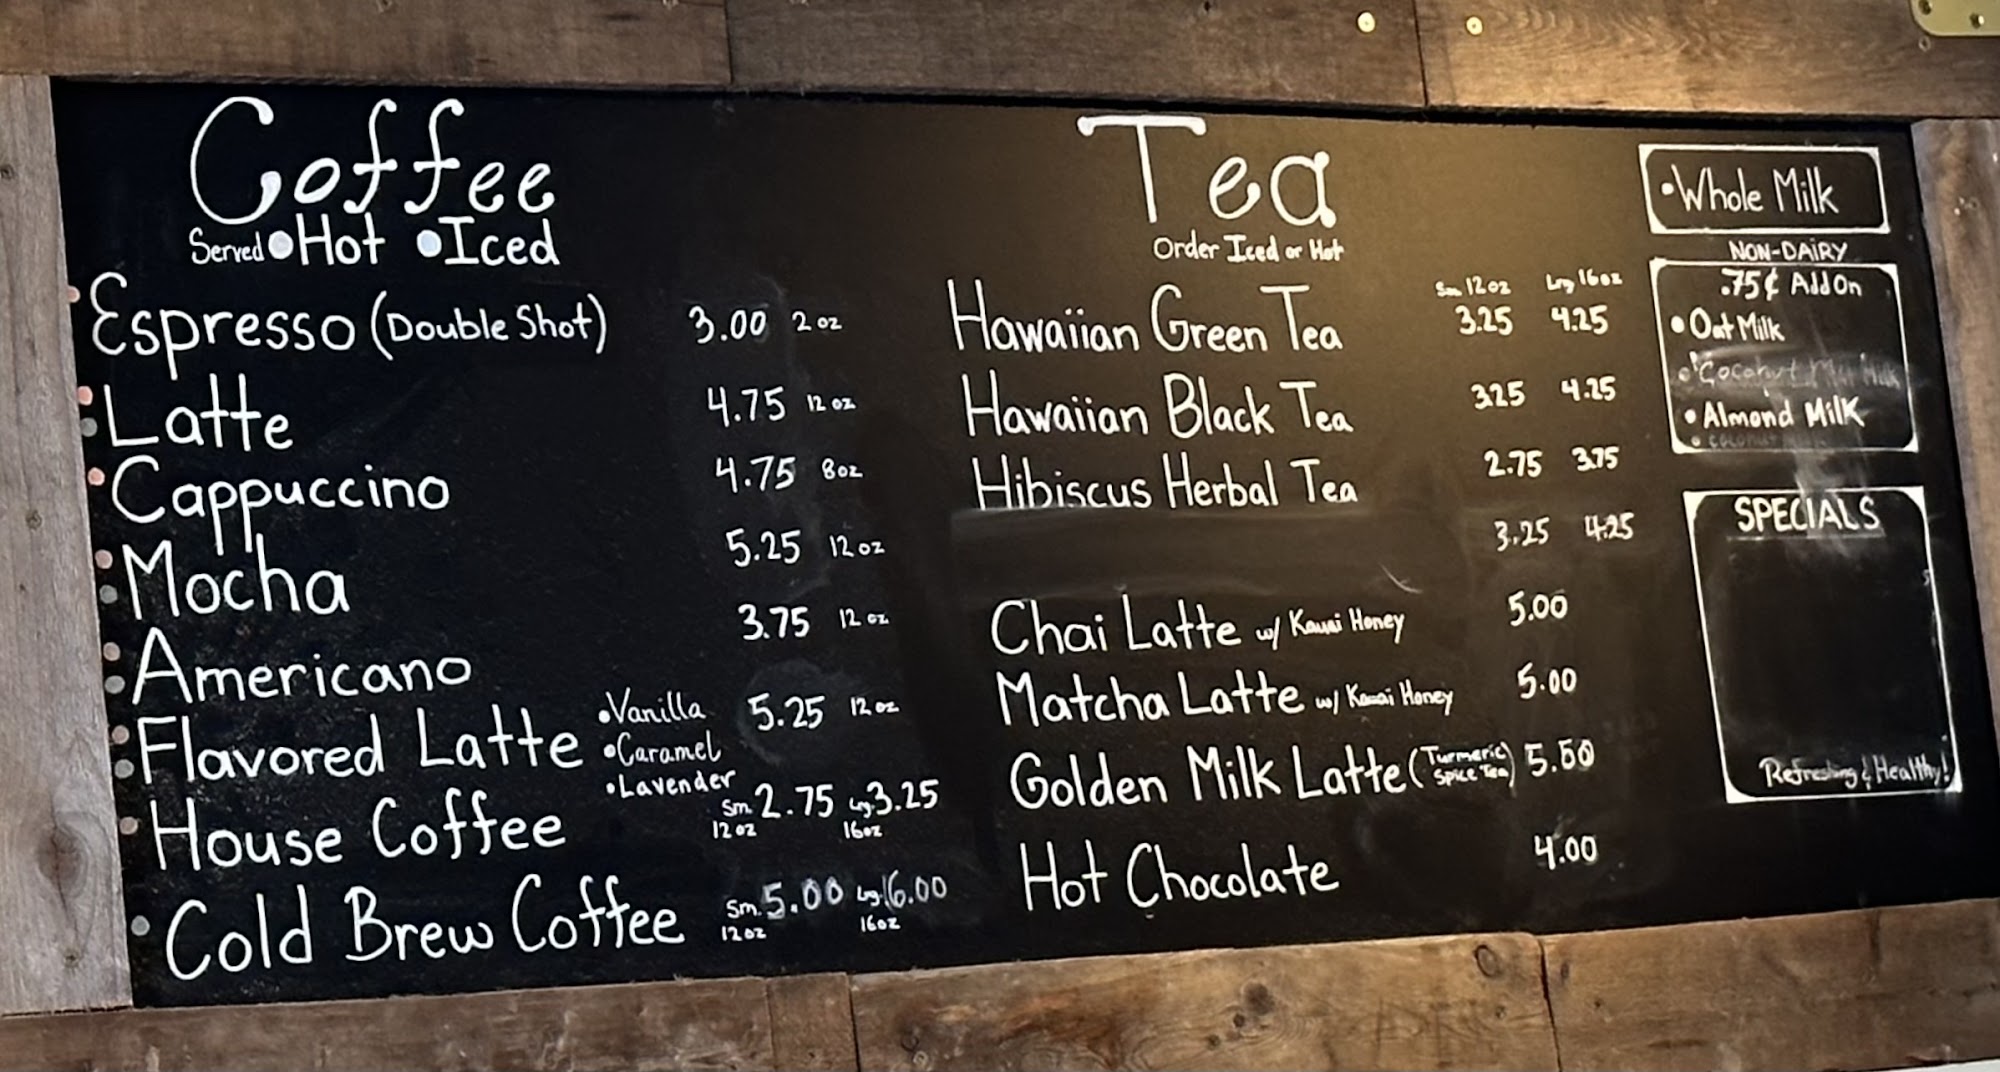 Coffee
Served Hot Iced
Espresso (Double Shot) 3.00 2 oz
Latte 4.75 12 oz
Cappuccino 4.75 8oz
Mocha 5.25 12 oz
Americano 3.75 12 oz
Flavored Latte •Vanilla 5.25 12 oz
•Caramel
•Lavender
House Coffee Sm. 2.75 Lrg. 3.25
12 oz 16oz
Cold Brew Coffee Sm. 5.00 Lrg. 6.00
12 oz 16oz
Tea
Order Iced or Hot
Sm 12oz Lrg 16oz
Hawaiian Green Tea 3.25 4.25
Hawaiian Black Tea 3.25 4.25
Hibiscus Herbal Tea 2.75 3.75
3.25 4.25
Chai Latte w/ Kauai Honey 5.00
Matcha Latte w/ Kauai Honey 5.00
Golden Milk Latte (Turmeric Spice Tea) 5.50
Hot Chocolate 4.00
•Whole Milk
NON-DAIRY
.75¢ Add On
•Oat Milk
•Coconut Milk
•Almond Milk
•coconut
SPECIALS
Refreshing & Healthy!